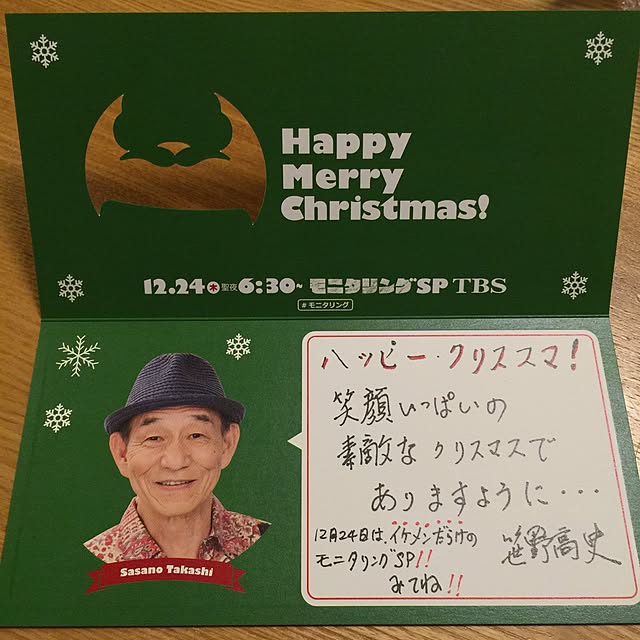 Happy
Merry
Christmas!
12.24木聖夜6:30~モニタリングSP TBS
#モニタリング
ハッピー・クリススマ!
笑顔いっぱいの
素敵なクリスマスで
ありますように・・・
12月24日は、イケメンだらけの
モニタリングSP!!
みてね!!
笹野高史
Sasano Takashi